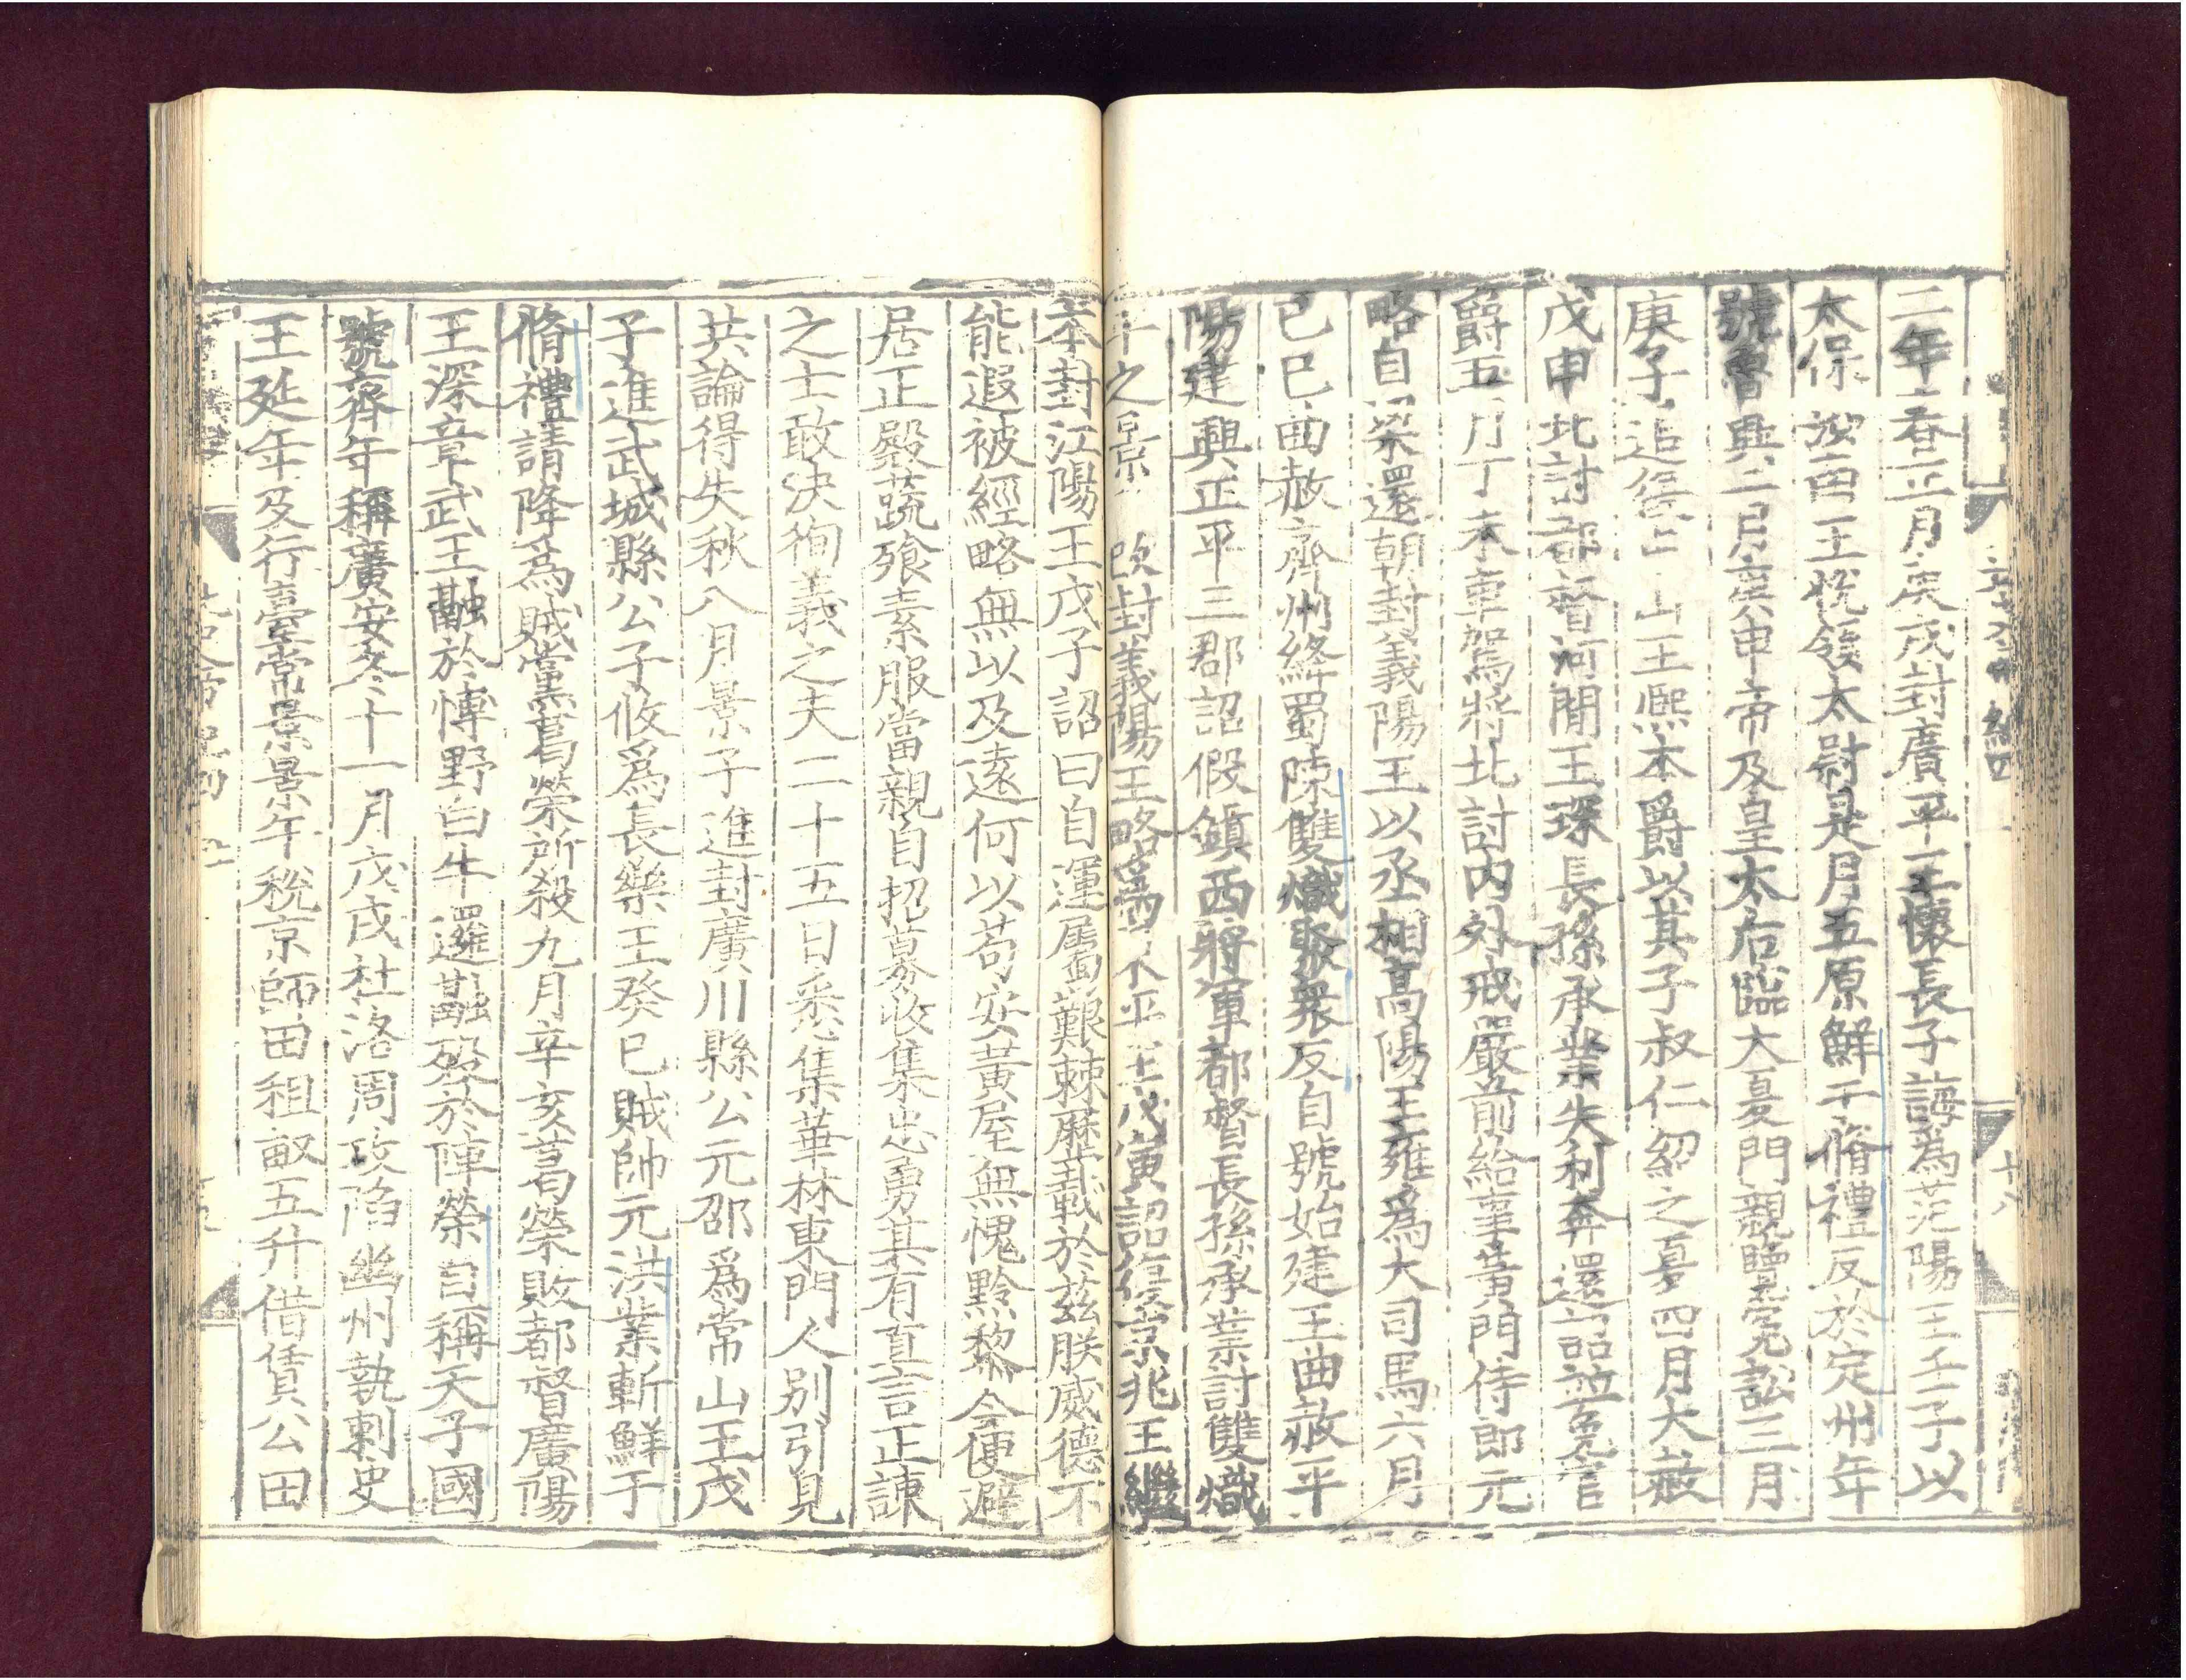 二年春正月庚戌封廣平王懷長子誨為范陽王壬子以
太保汝南王悅領太尉是月五原鮮于脩禮反於定州年
號魯興二月庚申帝及皇太后臨大夏門親覽冤訟三月
庚子追復中山王熙本爵以其子叔仁紹之夏四月大赦
戊申北討都督河間王琛長孫承業失利奔還詔並免官
爵五月丁未車駕將北討內外戒嚴前給事黃門侍郎元
略自梁還朝封義陽王以丞相高陽王雍為大司馬六月
己巳曲赦齊州絳蜀陳雙熾聚衆反自號始建王曲赦平
陽建興正平三郡詔假鎮西將軍都督長孫承業討雙熾
平之景 改封義陽王略為 平王戊寅詔復京兆王繼
本封江陽王戊子詔曰自運屬艱棘歷載於茲朕威德不
能遐被經略無以及遠何以苟安黃屋無愧黔黎今便避
居正殿蔬飧素服當親自招募收集忠勇其有直言正諫
之士敢決徇義之夫二十五日悉集華林東門人別引見
共論得失秋八月景子進封廣川縣公元邵為常山王戊
子進武城縣公子攸為長樂王癸巳賊帥元洪業斬鮮于
脩禮請降為賊黨葛榮所殺九月辛亥葛榮敗都督廣陽
王深章武王融於博野白牛邏融歿於陣榮自稱天子國
號齊年稱廣安冬十一月戊戌杜洛周攻陷幽州執刺史
王延年及行臺常景景午稅京師田租畝五升借賃公田